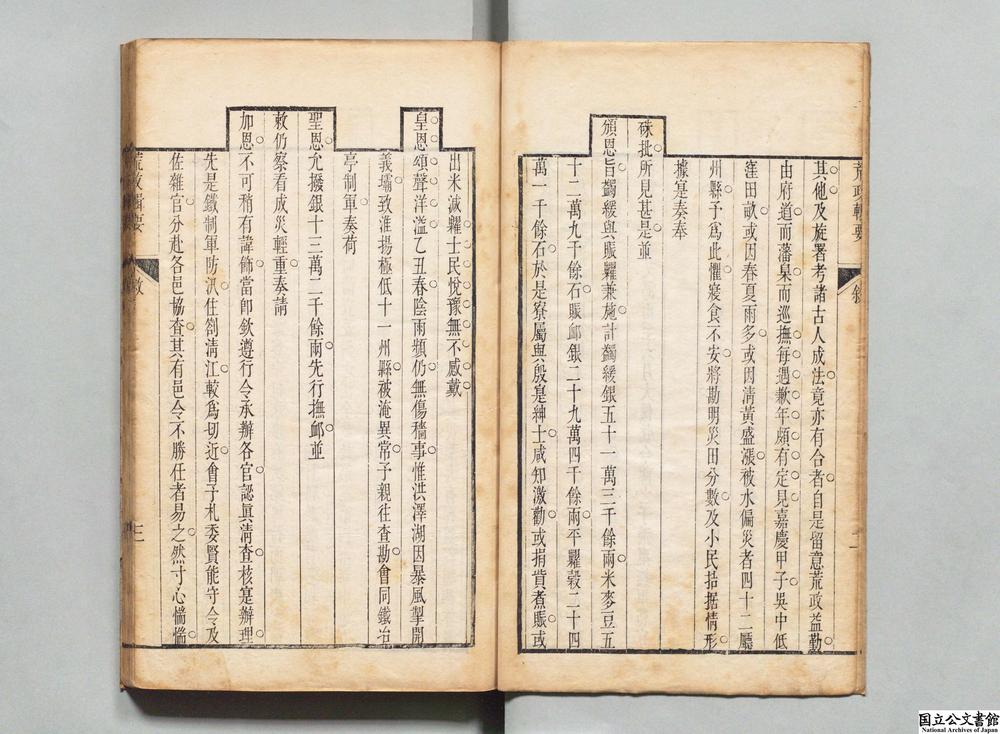 荒政輯要 敘 二
其他及旋署考諸古人成法竟亦有合者自是留意荒政益勤
由府道而藩臬而巡撫每遇歉年頗有定見嘉慶甲子吳中低
窪田畝或因春夏雨多或因清黃盛漲被水偏災者四十二廳
州縣予爲此懼寢食不安將勘明災田分數及小民拮据情形
據寔奏奉
硃批所見甚是並
頒恩旨蠲緩與賑糶兼施計蠲緩銀五十一萬三千餘兩米麥豆五
十二萬九千餘石賑卹銀二十九萬四千餘兩平糶穀二十四
萬一千餘石於是寮屬與殷寔紳士咸知激勸或捐貲煮賑或
出米減糶士民悅豫無不感戴
皇恩頌聲洋溢乙丑春陰雨頻仍無傷穡事惟洪澤湖因暴風掣開
義壩致淮揚極低十一州縣被淹異常予親往查勘會同鐵冶
亭制軍奏荷
聖恩允撥銀十三萬二千餘兩先行撫卹並
敕仍察看成災輕重奏請
加恩不可稍有諱飾當即欽遵行令承辦各官認眞清查核寔辦理
先是鐵制軍防汛住劄清江較爲切近會予札委賢能守令及
佐雜官分赴各邑協查其有邑令不勝任者易之然寸心惴惴
荒政輯要 敘 三
国立公文書館
National Archives of Japan